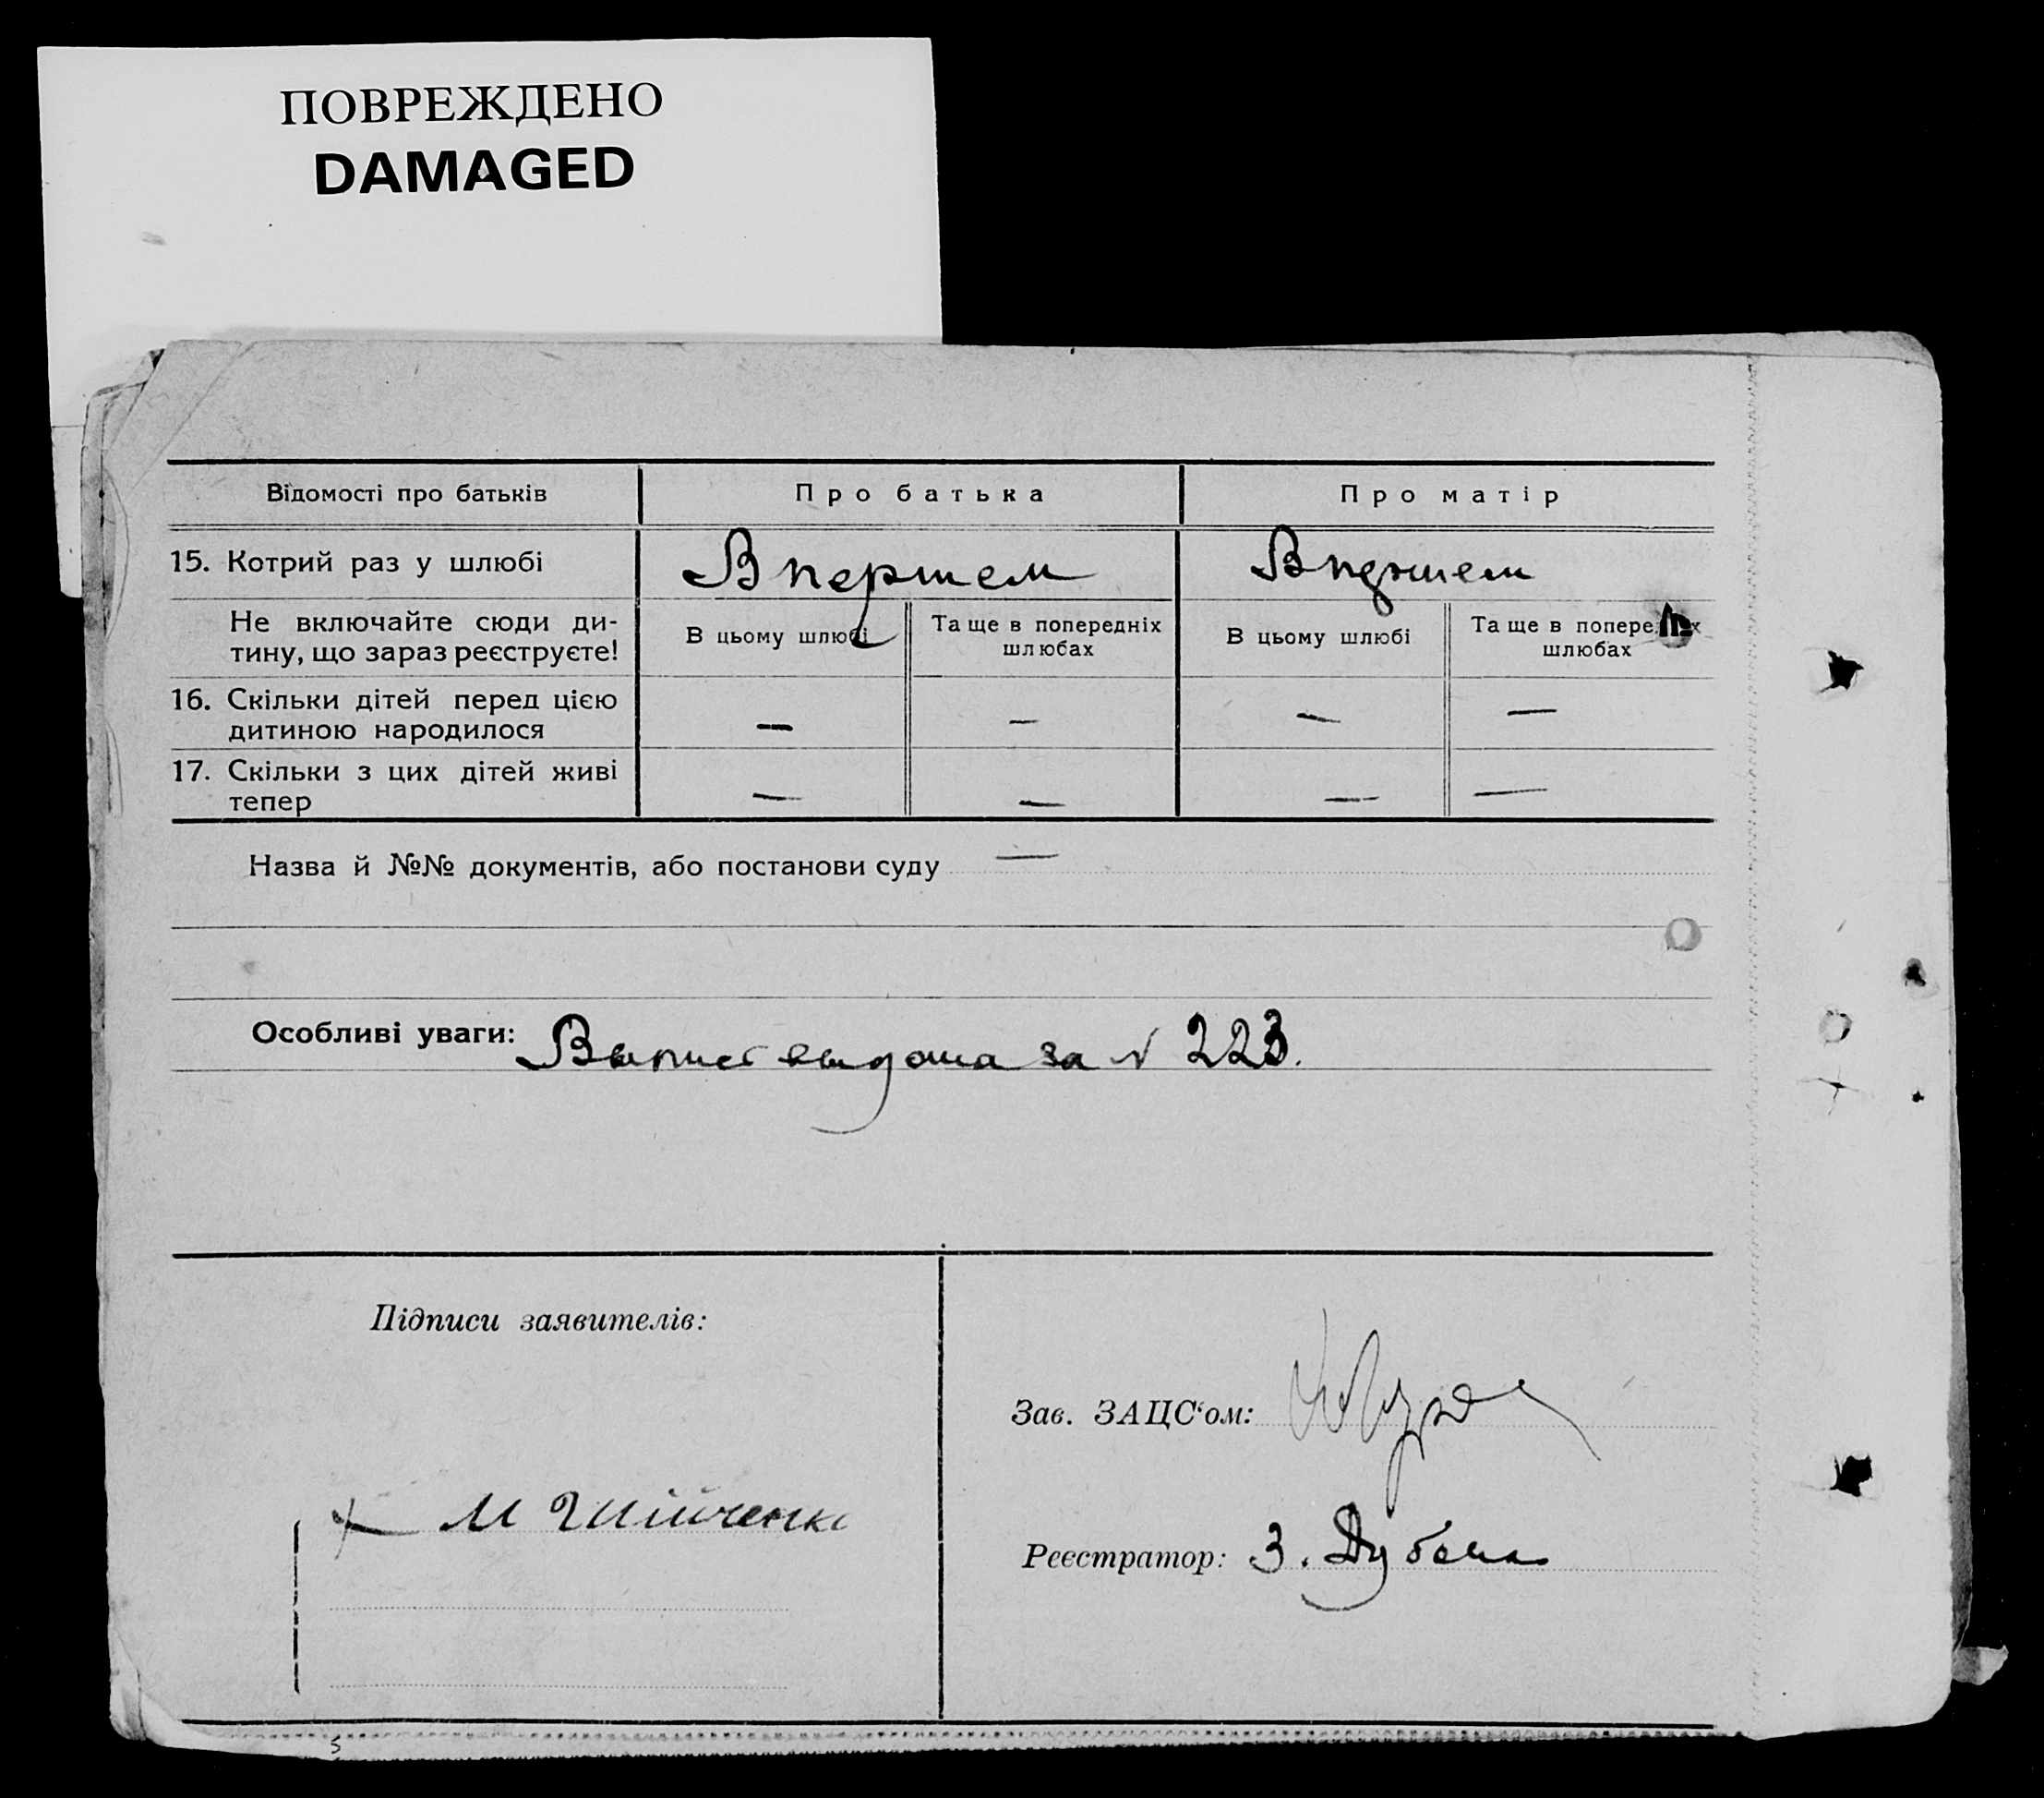 ПОВРЕЖДЕНО
DAMAGED
Відомості про батьків
Про батька
Про матір
15. Котрий раз у шлюбі
В першем
В першем
Не включайте сюди ди-
тину, що зараз реєструєте!
В цьому шлюбі
Та ще в попередніх
шлюбах
В цьому шлюбі
Та ще в попере х
шлюбах
16. Скільки дітей перед цією
дитиною народилося
— — — —
17. Скільки з цих дітей живі
тепер
— — — —
Назва й №№ документів, або постанови суду —
Особливі уваги: за N 223.
Підписи заявителів:
Зав. ЗАЦС‘ом:
М
Реєстратор: З.